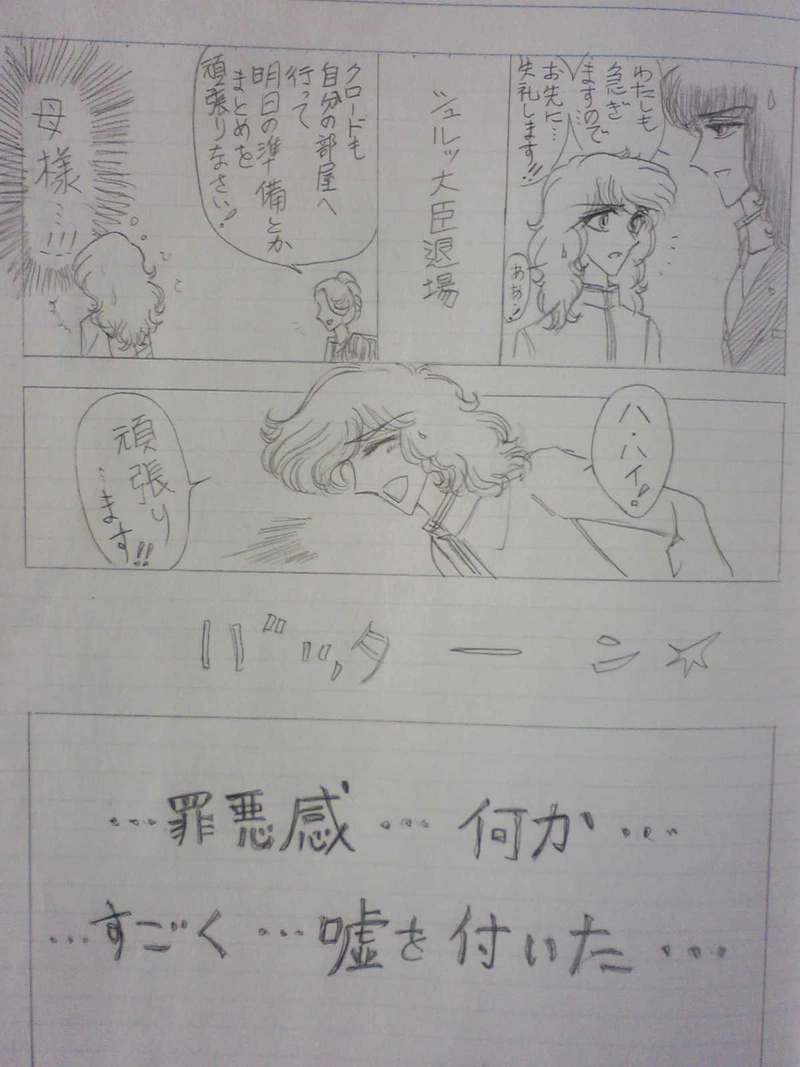 わたしも
急ぎ
ますので
お先に…
失礼します!!
あお
ジュルッ大臣退場
クロードも
自分の部屋へ
行って
明日の準備とか
まとめを
頑張りなさい!
母様…!!!
ハ・ハイ!
頑張り
…ます!!
バッターン☆
…罪悪感…何か…
…すごく…嘘を付いた…